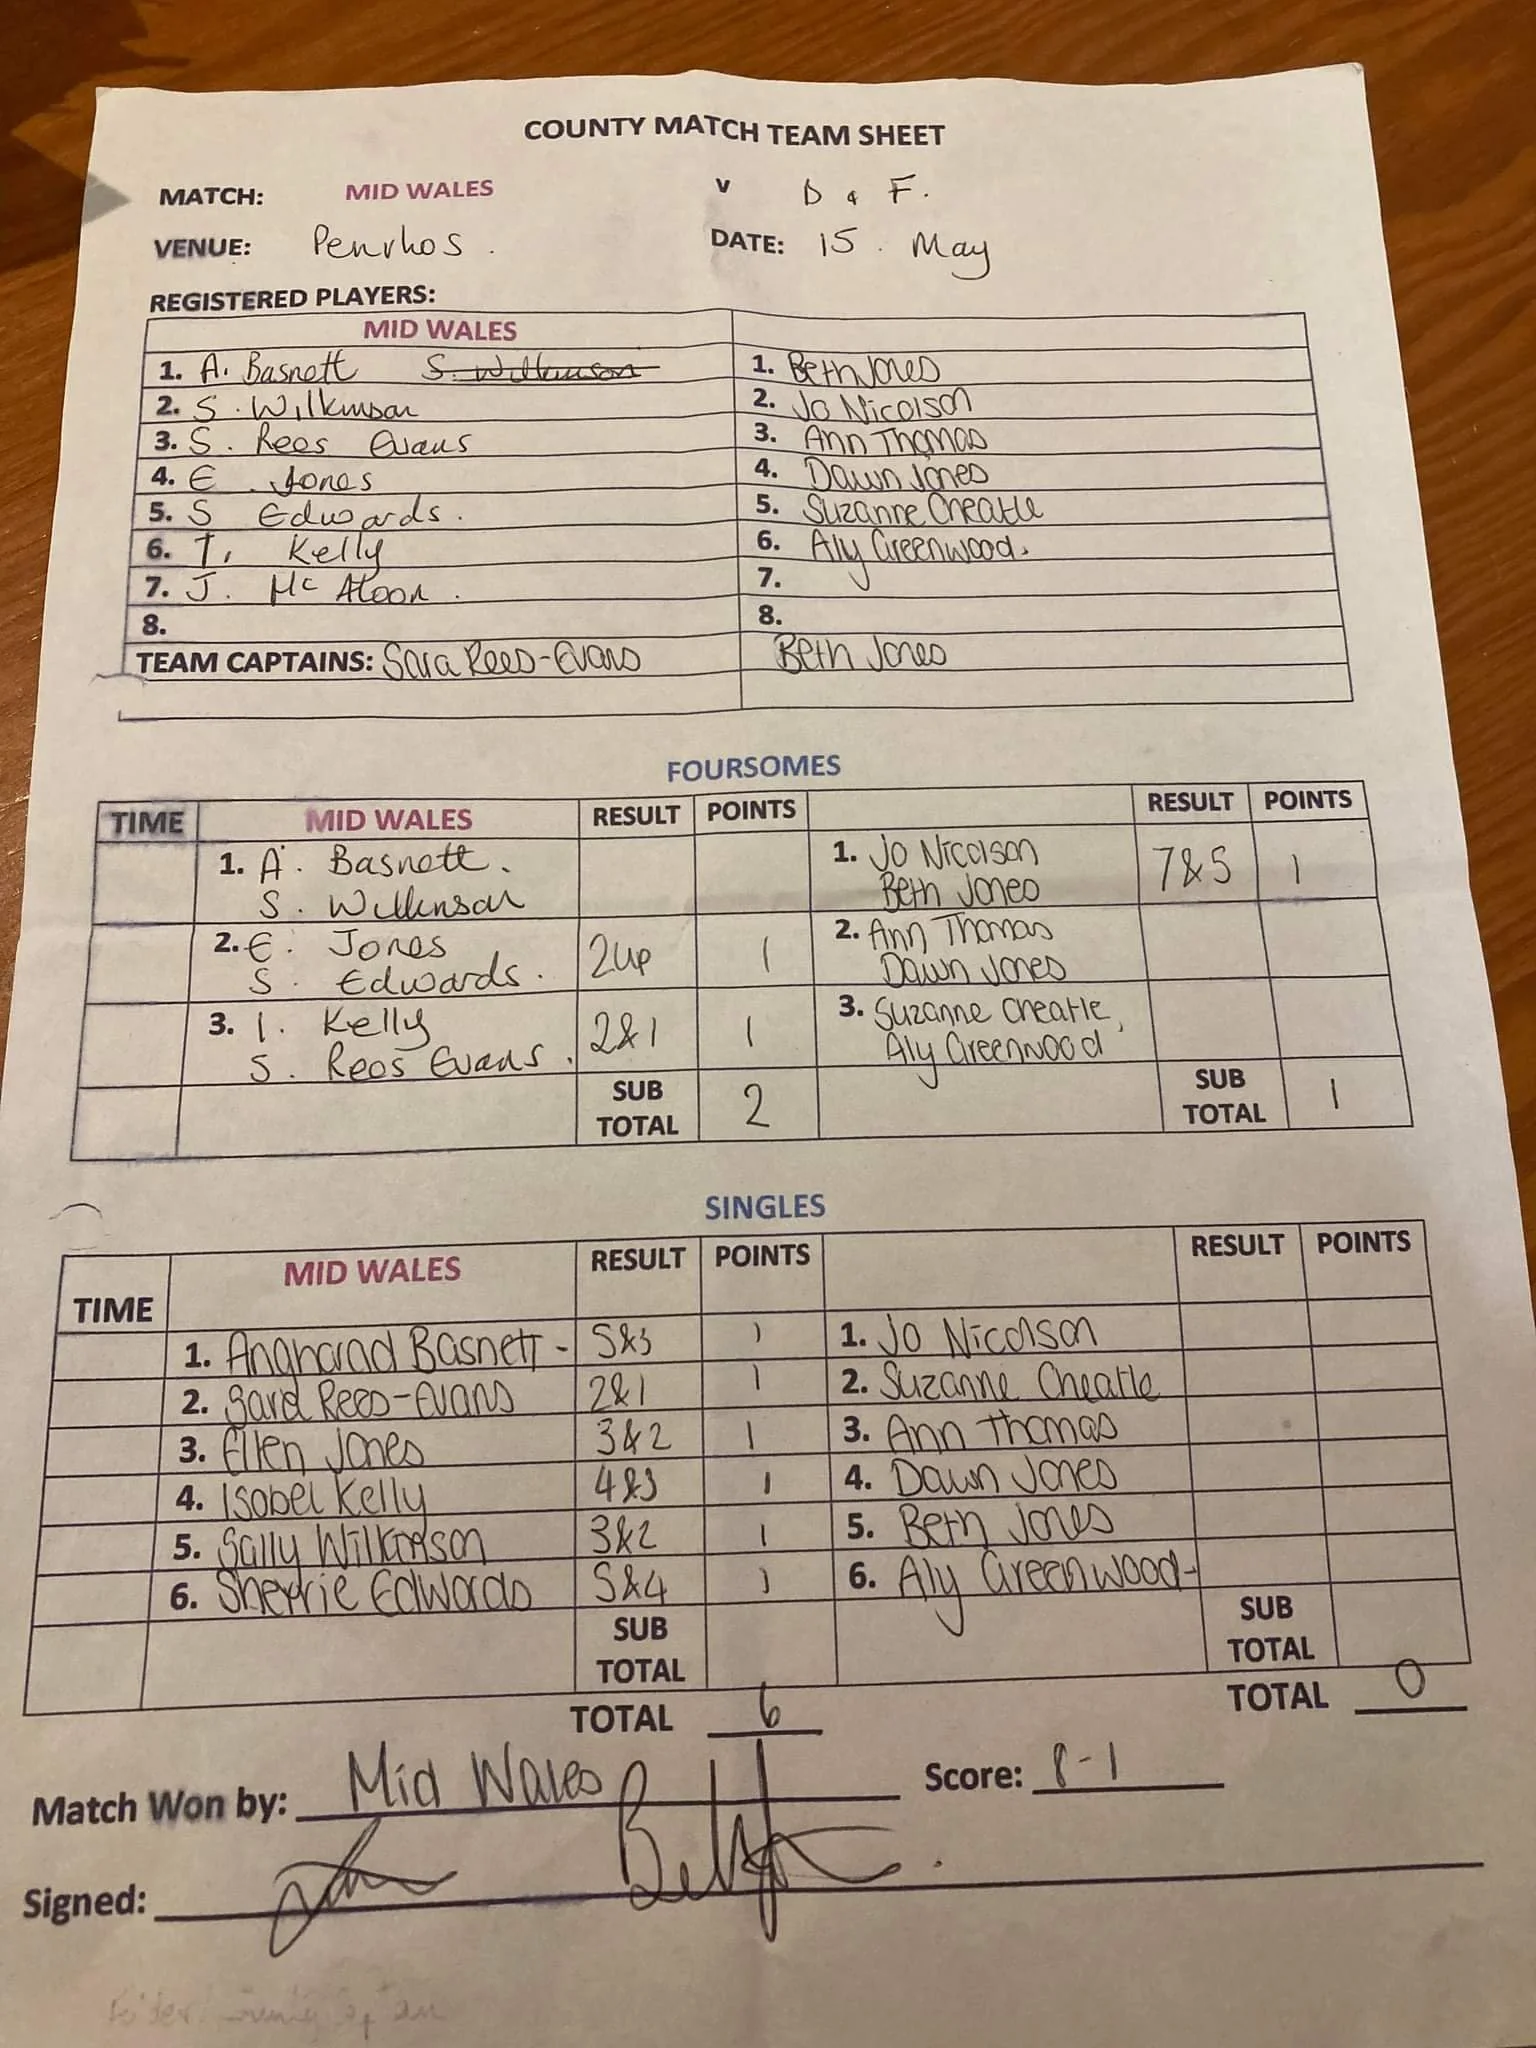 COUNTY MATCH TEAM SHEET
MATCH: MID WALES v D & F.
VENUE: Penrhos. DATE: 15. May
REGISTERED PLAYERS:
MID WALES
1. A. Basnett S. Wilkinson 1. Beth Jones
2. S. Wilkinson 2. Jo Nicolson
3. S. Rees Evans 3. Ann Thomas
4. E. Jones 4. Dawn Jones
5. S Edwards. 5. Suzanne Cheatle
6. I. Kelly 6. Aly Greenwood.
7. J. Mc Aloon. 7.
8. 8.
TEAM CAPTAINS: Sara Rees-Evans Beth Jones
FOURSOMES
TIME MID WALES RESULT POINTS RESULT POINTS
1. A. Basnett. 1. Jo Nicolson 7&5 1
S. Wilkinson Beth Jones
2. E. Jones 2up 1 2. Ann Thomas
S. Edwards. Dawn Jones
3. I. Kelly 2&1 1 3. Suzanne Cheatle,
S. Rees Evans. Aly Greenwood
SUB TOTAL 2 SUB TOTAL 1
SINGLES
TIME MID WALES RESULT POINTS RESULT POINTS
1. Angharad Basnett - 5&3 1 1. Jo Nicolson
2. Sara Rees-Evans 2&1 1 2. Suzanne Cheatle
3. Ellen Jones 3&2 1 3. Ann Thomas
4. Isobel Kelly 4&3 1 4. Dawn Jones
5. Sally Wilkinson 3&2 1 5. Beth Jones
6. Sherrie Edwards 5&4 1 6. Aly Greenwood-
SUB TOTAL SUB TOTAL
TOTAL 6 TOTAL 0
Match Won by: Mid Wales Score: 8-1
Signed: